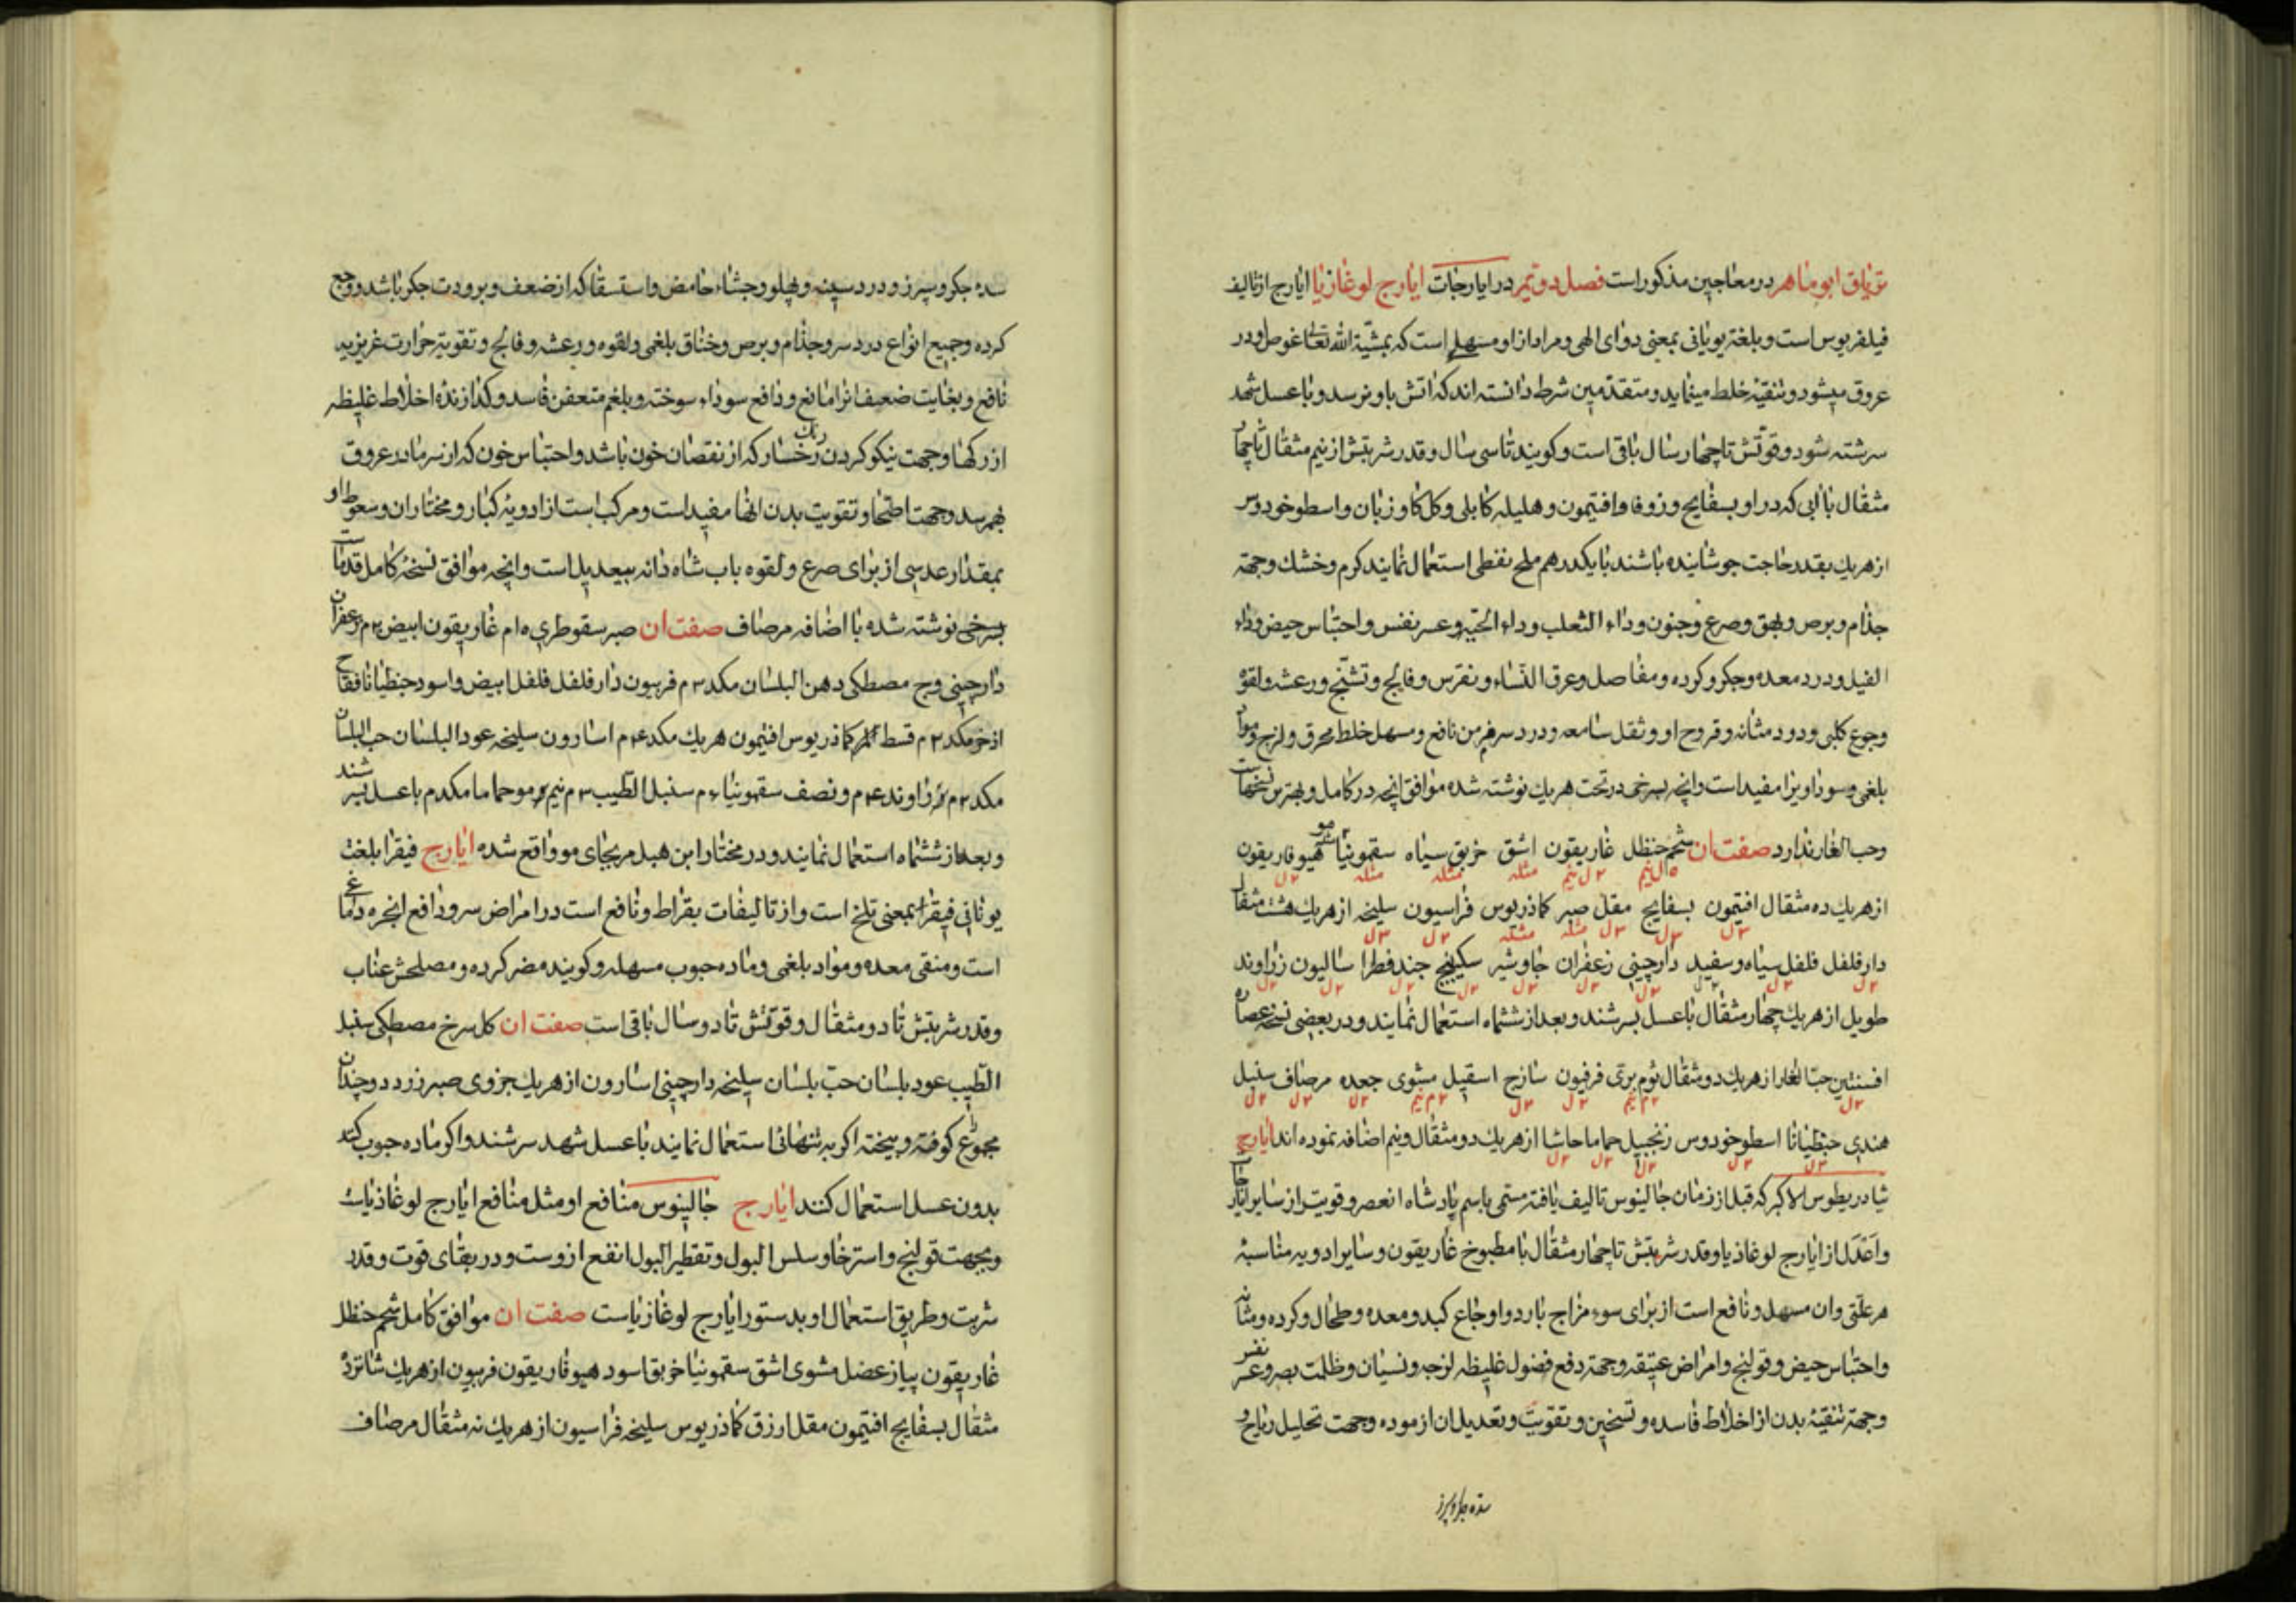 تریاق ابوماهر در معاجین مذکور است فصل دویم در ایارجات ایارج لوغازیا ایارج از تالیف
فیلغریوس است و بلغة یونانی بمعنی دوای الهی و مراد از او مسهلی است که بمشیّة الله تعالی غوص او در
عروق میشود و تنقیهٔ خلط مینماید و متقدّمین شرط دانسته اند که اتش باو نرسد و با عسل شهد
سرشته شود و قوّتش تا چهار سال باقی است و کویند تا سی سال و قدر شربتش از نیم مثقال تا چهار
مثقال با ابی که در او بسفایج و زوفا و افتیمون و هلیله کابلی و کل کاو زبان و اسطوخودوس
از هریك بقدر حاجت جوشانیده باشند با یکدرهم ملح نفطی استعمال نمایند کرم و خشك و جهة
جذام و برص و بهق و صرع و جنون و داء الثعلب و داء الحیه و عسر نفس و احتباس حیض و داء
الفیل و درد معده و جکر و کرده و مفاصل و عرق النّساء و نقرس و فالج و تشنّج و رعشه و لقوهٔ
وجوع کلبی و دود مثانه و قروح او و ثقل سامعه و درد سر مزمن نافع و مسهل خلط محرق و لزج و مواد
بلغمی و سوداویرا مفید است و انچه بسرخی در تحت هریك نوشته شده موافق انچه در کامل و بهترین نسخهاست
وحب الغار ندارد صفت ان شحم حنظل غاریقون اشق خربق سیاه سقمونیا هیوفاریقون
از هریك ده مثقال افتیمون بسفایج مقل صبر کماذریوس فراسیون سلیخه از هریك هشت مثقال
دارفلفل فلفل سیاه و سفید دارچینی زعفران جاوشیر سکبینج جند فطراسالیون زراوند
طویل از هریك چهار مثقال با عسل بسرشند و بعد از ششماه استعمال نمایند و در بعضی نسخه عصاره
افسنتین حبّ الغار از هریك دو مثقال ثوم برّی فرفیون سازج اسقیل مشوی جعده مرصاف سنبل
هندی جنطیانا اسطوخودوس زنجبیل حماما حاشا از هریك دو مثقال و نیم اضافه نموده اند ایارج
ثیادریطوس الاکبر که قبل از زمان جالینوس تالیف یافته مسمّی باسم پادشاه انعصر و قویتر از سایر ایارجات
واعدل از ایارج لوغاذیا و قدر شربتش تا چهار مثقال با مطبوخ غاریقون و سایر ادویه مناسبهٔ
هر علّتی و ان مسهل و نافع است از برای سوء مزاج بارد و اوجاع کبد و معده و طحال و کرده و مثانه
و احتباس حیض و قولنج و امراض عتیقه و جهة دفع فضول غلیظه لزجه و نسیان و ظلمت بصر و عسر نفس
وجهة تنقیهٔ بدن از اخلاط فاسده و تسخین و تقویت و تعدیل ان ازموده وجهت تحلیل ریاح و
سده جکر و سپرز
سده جکر و سپرز و درد سینه و پهلو و جشاء حامض و استسقا که از ضعف و برودت جکر باشد و وجع
کرده و جمیع انواع درد سر و جذام و برص و خناق بلغمی و لقوه و رعشه و فالج و تقویة حرارت غریزیه
نافع و بغایت ضعیف انرا مانع و دافع سوداء سوخته و بلغم متعفن فاسد و کدازندهٔ اخلاط غلیظه
از رکها وجهت نیکو کردن رنك رخسار که از نقصان خون باشد و احتباس خون که از سرما در عروق
بهم رسد وجهت اطحا و تقویت بدن انها مفید است و مرکب است از ادویهٔ کبار و مختاران و سعوط او
بمقدار عدسی از برای صرع و لقوه باب شاه دانه بیعدیل است و انچه موافق نسخهٔ کامل قدماست
بسرخی نوشته شده با اضافه مرصاف صفت ان صبر سقوطری ۱۵م غاریقون ابیض ۲۰م زعفران
دارچینی وج مصطکی دهن البلسان مکد ۳م فربیون دارفلفل فلفل ابیض و اسود جنطیانا فقاح
اذخر مکد ۲م قسط کماذریوس افتیمون هریك مکد ۴م اسارون سلیخه عود البلسان حب البلسان
مکد ۲م زراوند ۴م و نصف سقمونیاء م سنبل الطّیب ۳م نیم مو حماما مکدم با عسل بسرشند
و بعد از ششماه استعمال نمایند و در مختار ابن هبل مر بجای مو واقع شده ایارج فیقرا بلغت
یونانی فیقرا بمعنی تلخ است و از تالیفات بقراط و نافع است در امراض سر و دافع ابخره دماغی
است و منقی معده و مواد بلغمی و ماده حبوب مسهله و کویند مضر کرده و مصلحش عناب
و قدر شربتش تا دو مثقال و قوّتش تا دو سال باقی است صفت ان کل سرخ مصطکی سنبل
الطّیب عود بلسان حبّ بلسان سلیخه دارچینی اسارون از هریك جزوی صبر زرد دو چندان
مجموع کوفته و بیخته اکر به تنهائی استعمال نمایند با عسل شهد سرشند و اکر ماده حبوب کنند
بدون عسل استعمال کنند ایارج جالینوس منافع او مثل منافع ایارج لوغاذیاست
و بجهت قولنج و استرخا و سلس البول و تقطیر البول انفع ازوست و در بقای قوت و قدر
شربت و طریق استعمال او بدستور ایارج لوغازیاست صفت ان موافق کامل شحم حنظل
غاریقون پیاز عضل مشوی اشق سقمونیا خربق اسود هیوفاریقون فربیون از هریك شانزدهٔ
مثقال بسفایج افتیمون مقل ارزق کماذریوس سلیخه فراسیون از هریك نه مثقال مرصاف